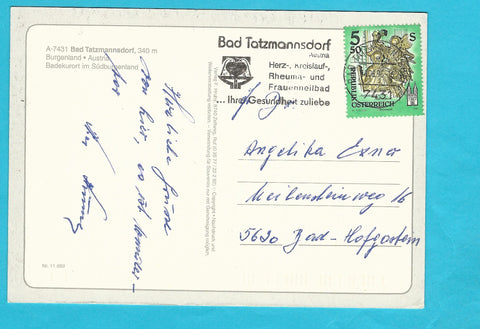 A-7431 Bad Tatzmannsdorf, 340 m
Burgenland • Austria
Badekurort im Südburgenland
Herzliche Grüsse
von hier, es ist wunder-
bar
Nr. 11.669
Bad Tatzmannsdorf
Austria
Herz-, Kreislauf-,
Rheuma- und
Frauenheilbad
... Ihrer Gesundheit zuliebe
5 S
50
REPUBLIK
ÖSTERREICH
7431
Angelika Exner
Meilensteinweg 16
5620 Bad-Hofgastein